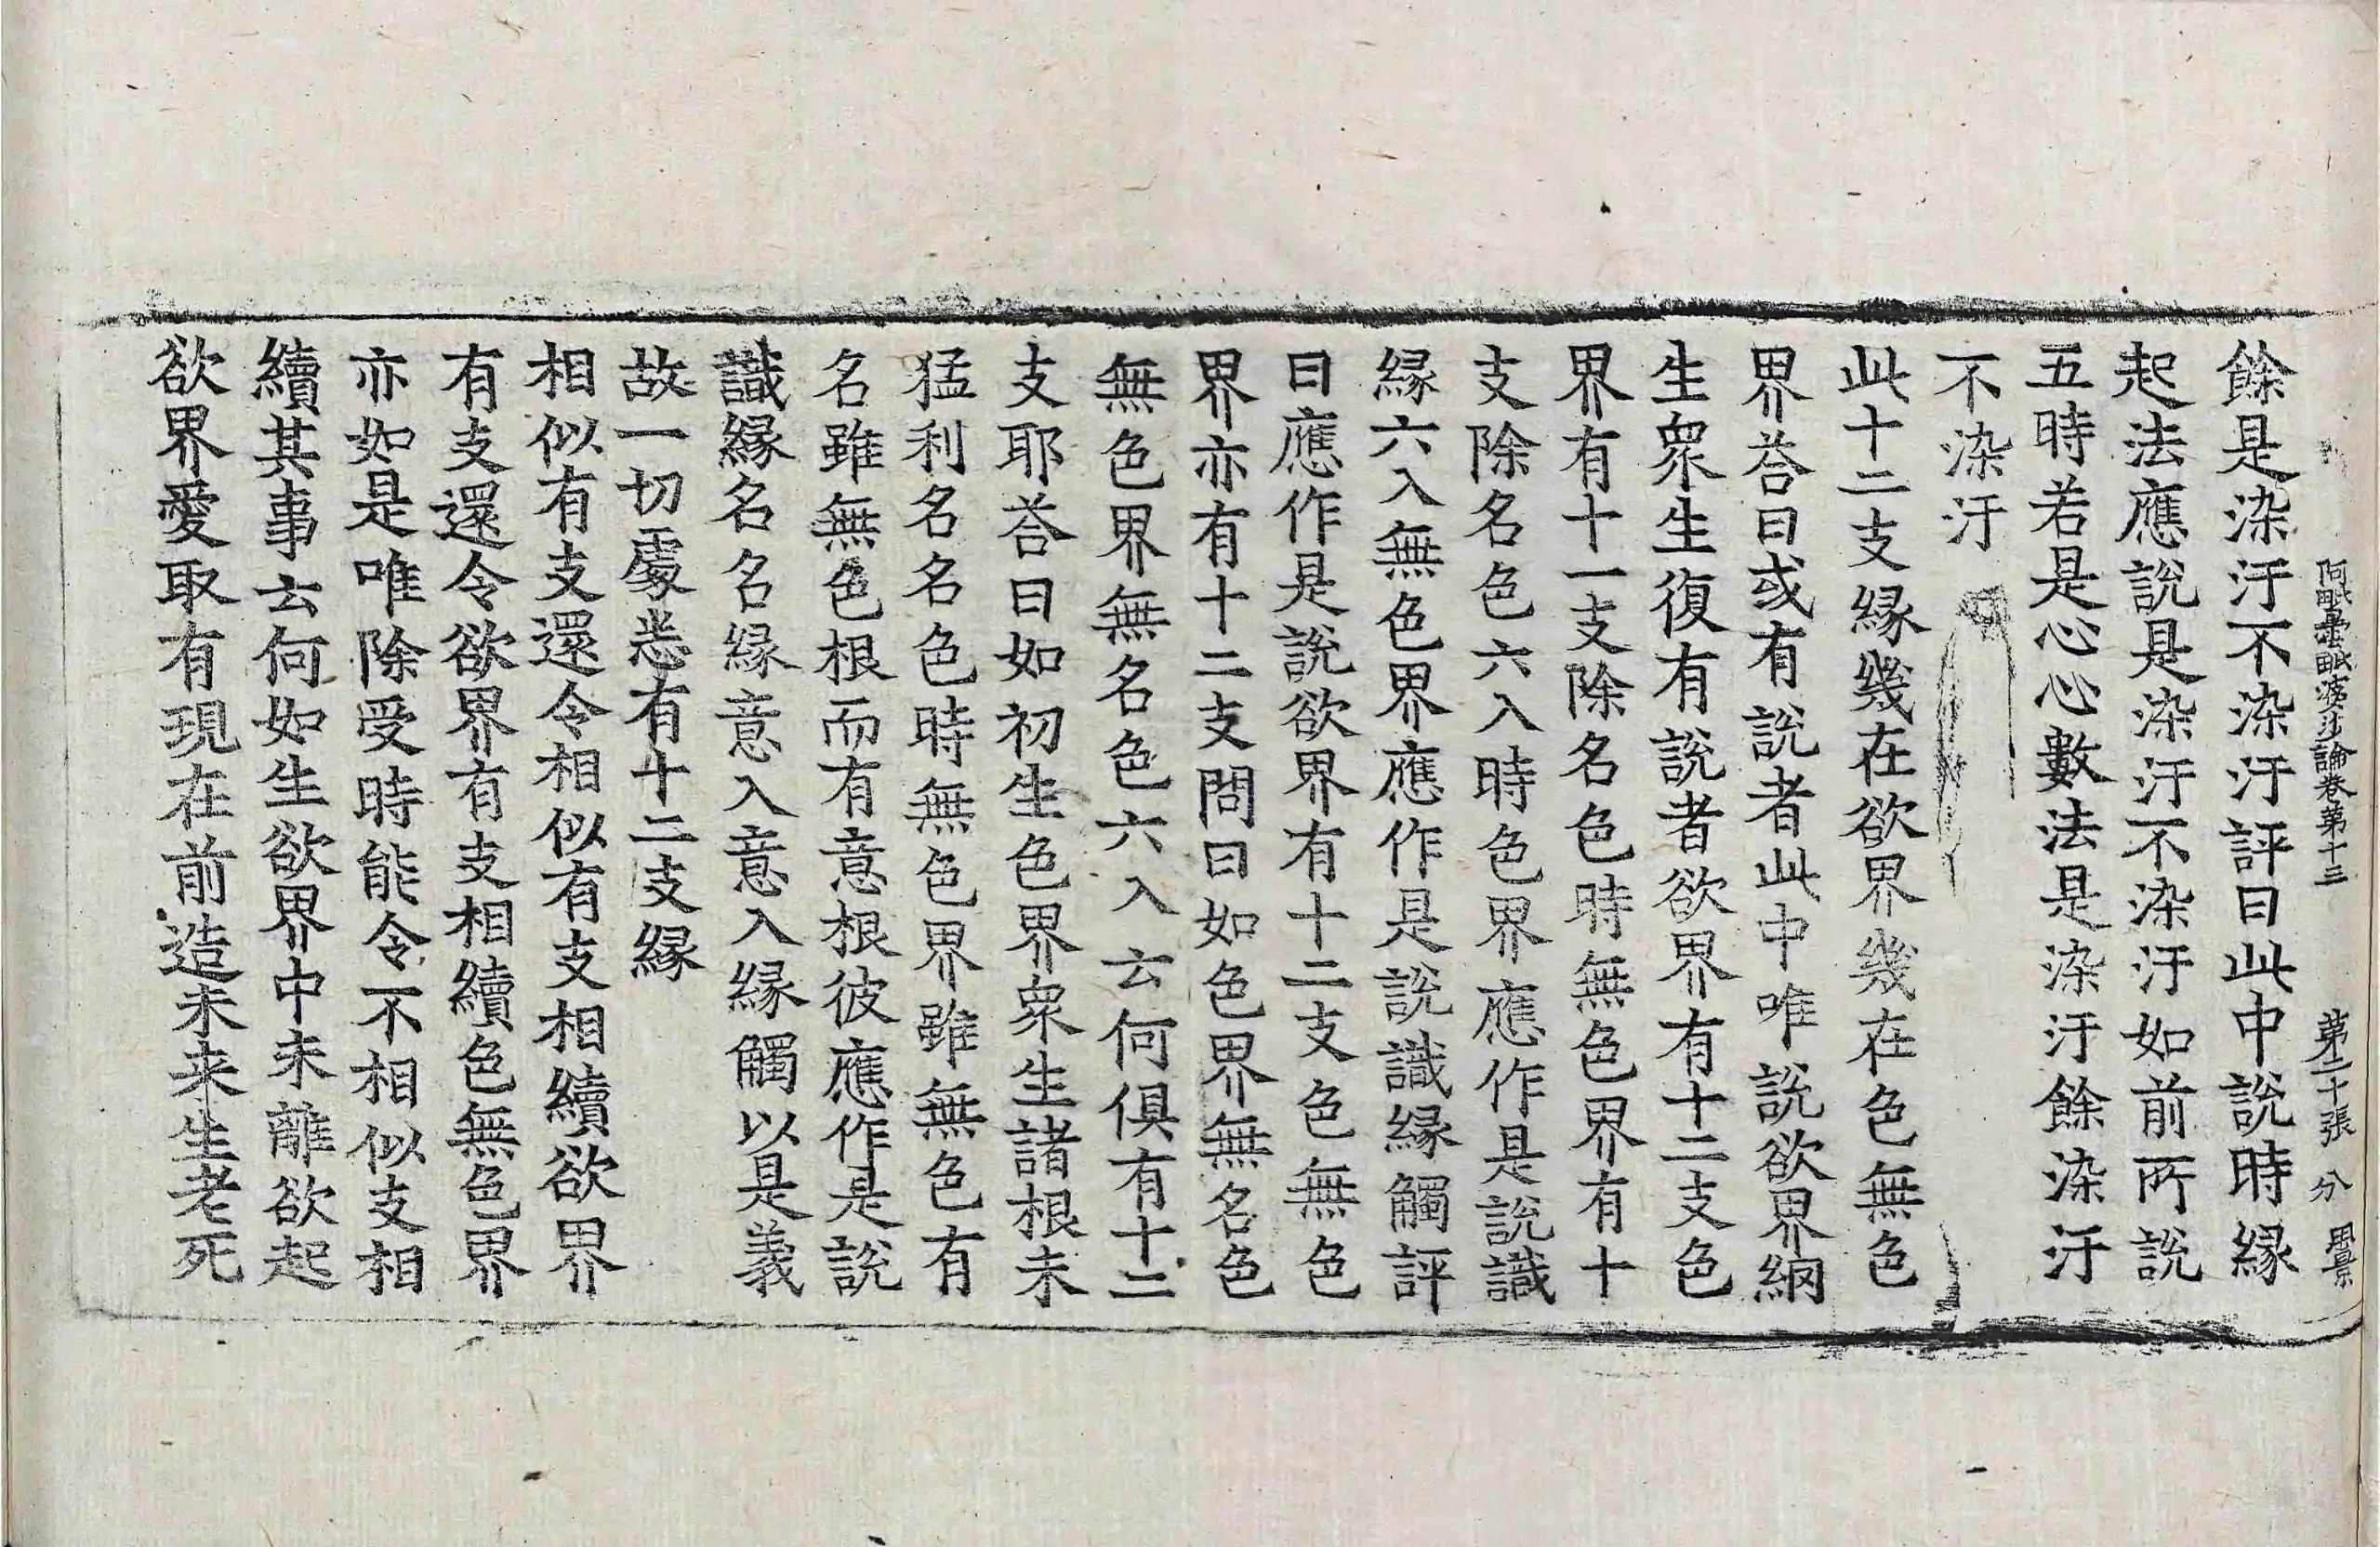 阿毗曇毗婆沙論卷第十三　第二十張　分
餘是染汙不染汙評曰此中說時縁
起法應說是染汙不染汙如前所說
五時若是心心數法是染汙餘染汙
不染汙
此十二支縁幾在欲界幾在色無色
界荅曰或有說者此中唯說欲界網
生衆生復有說者欲界有十二支色
界有十一支除名色時無色界有十
支除名色六入時色界應作是說識
縁六入無色界應作是說識縁觸評
曰應作是說欲界有十二支色無色
界亦有十二支問曰如色界無名色
無色界無名色六入云何俱有十二
支耶荅曰如初生色界衆生諸根未
猛利名名色時無色界雖無色有
名雖無色根而有意根彼應作是說
識縁名名縁意入意入縁觸以是義
故一切處悉有十二支縁
相似有支還令相似有支相續欲界
有支還令欲界有支相續色無色界
亦如是唯除受時能令不相似支相
續其事云何如生欲界中未離欲起
欲界愛取有現在前造未来生老死